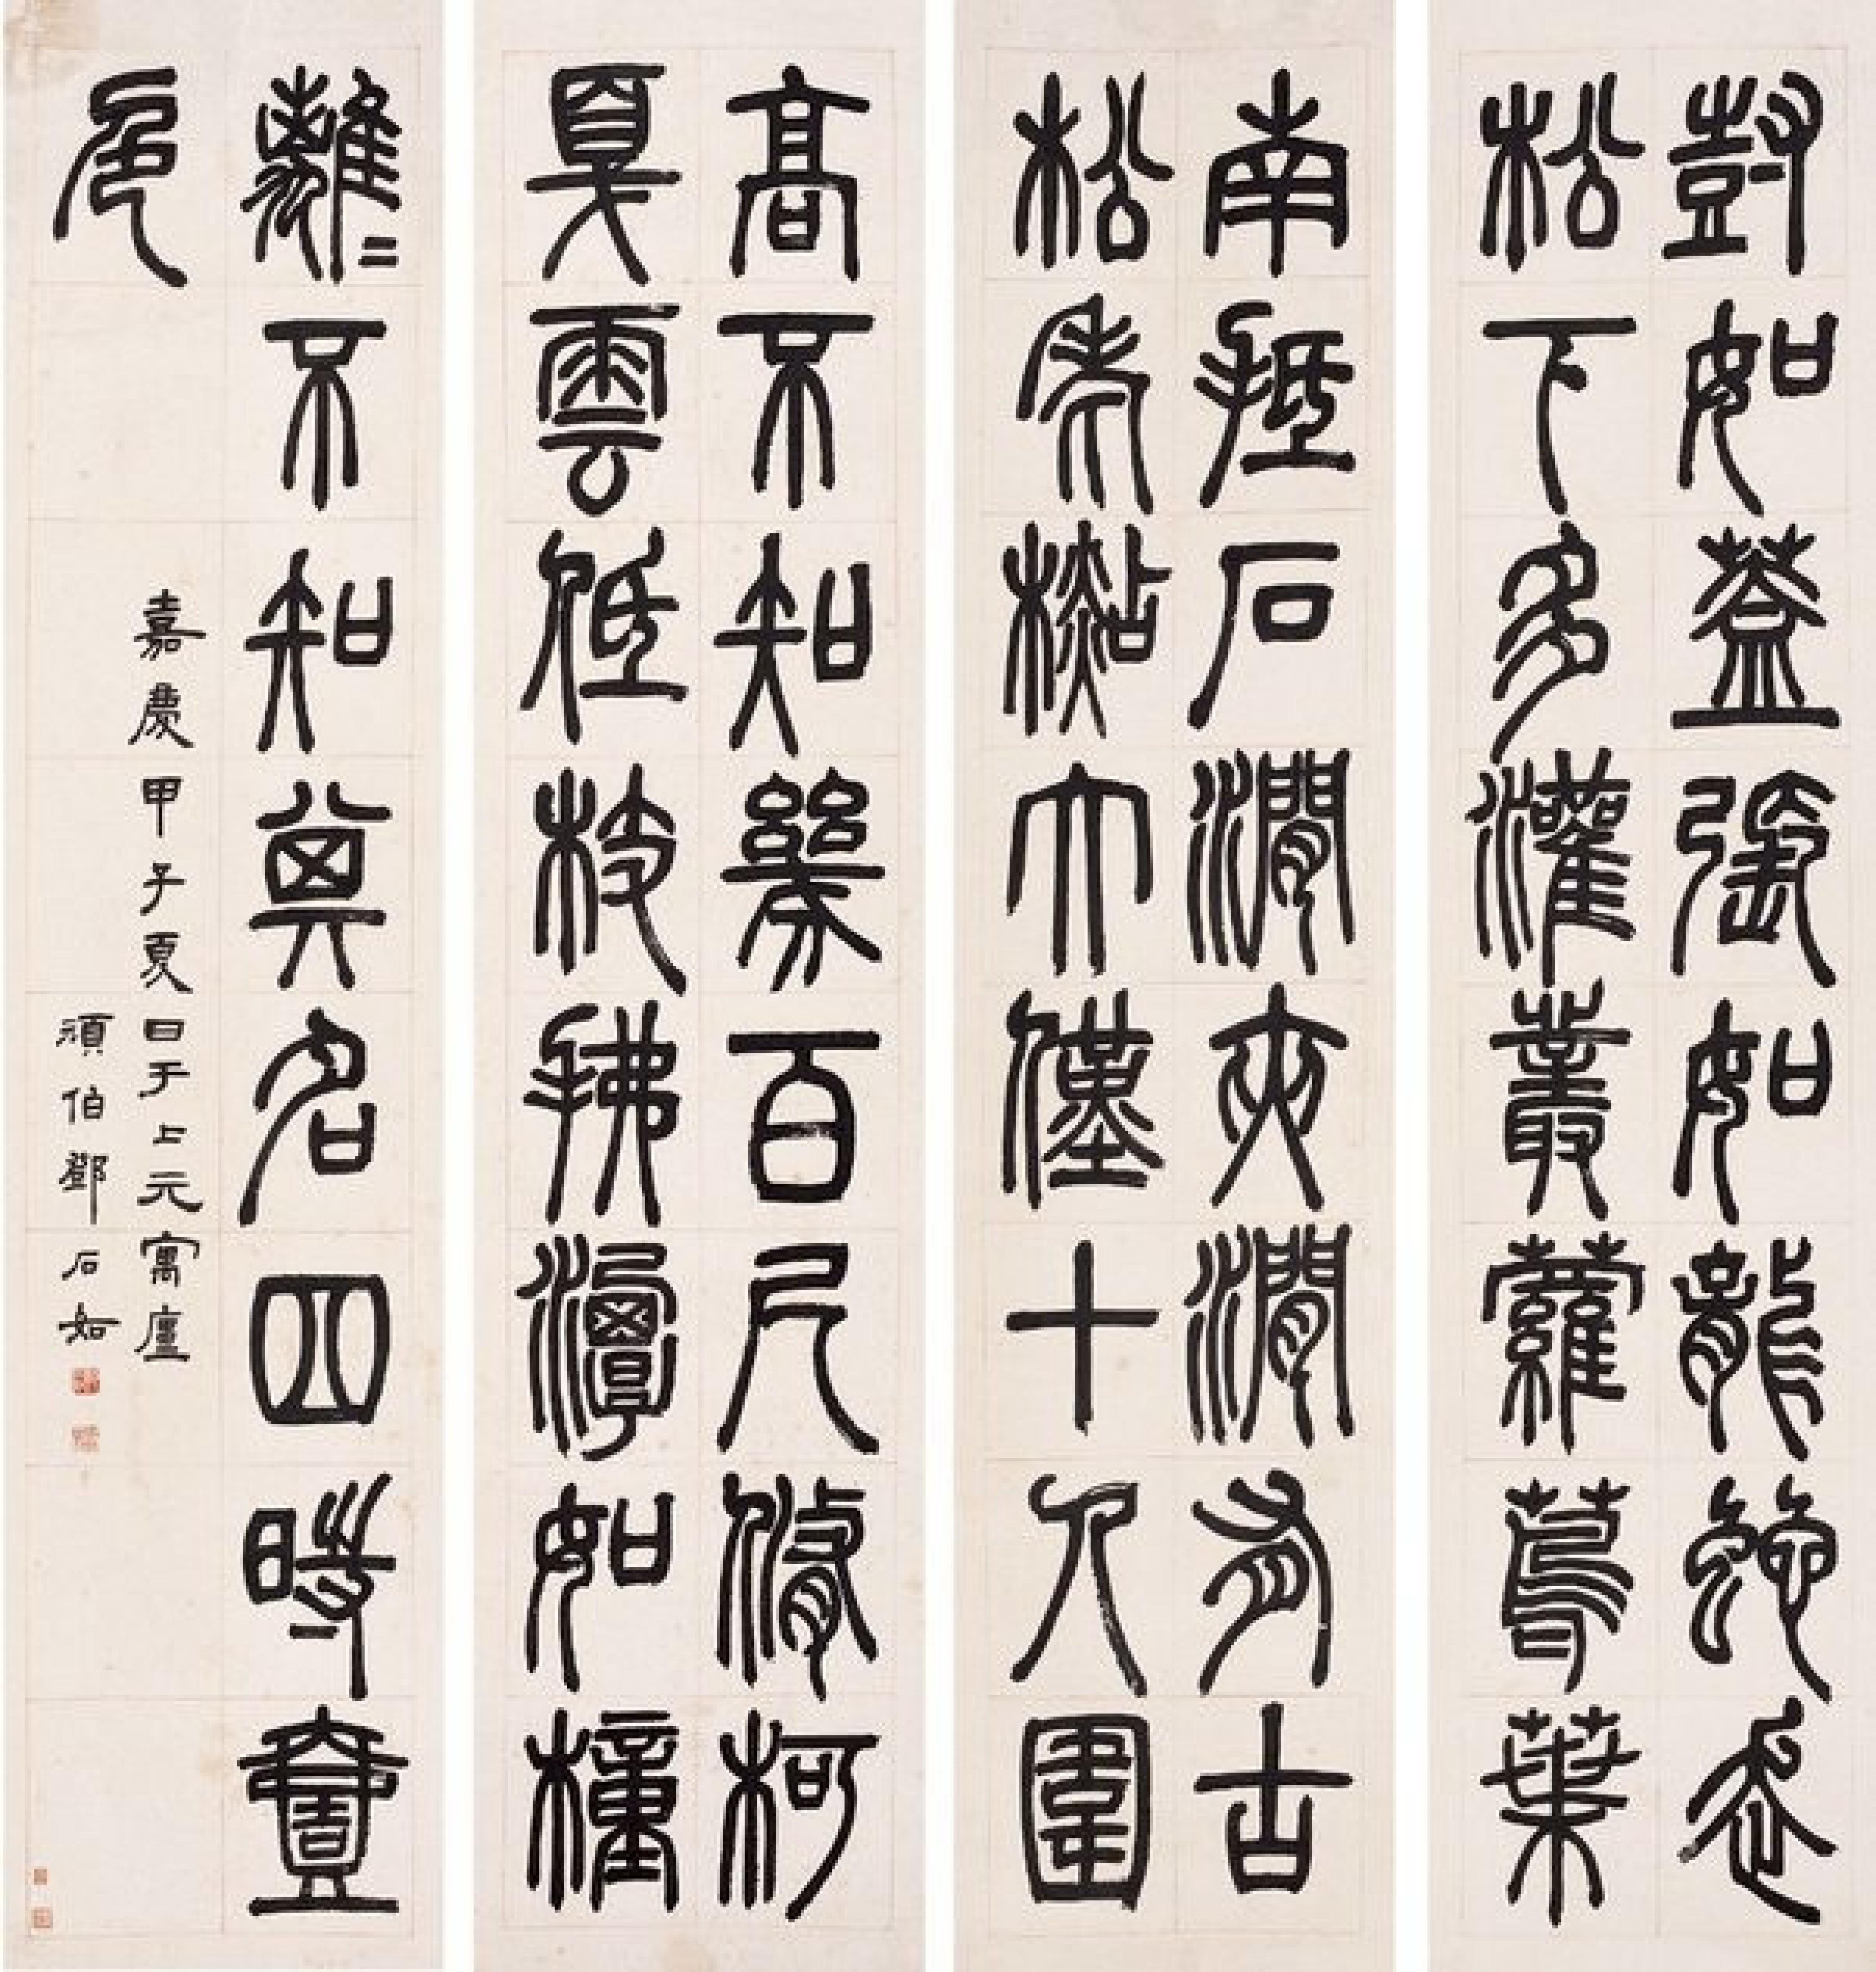 尌如蓋張如龍蛇走
松下多灌叢蘿蔦葉
南抵石澗夾澗有古
松老檆大僅十人圍
高不知幾百尺脩柯
戛雲低枝拂潭如橦
離〻不知其名四時壹
色
嘉慶甲子夏日于上元寓廬
頑伯鄧石如